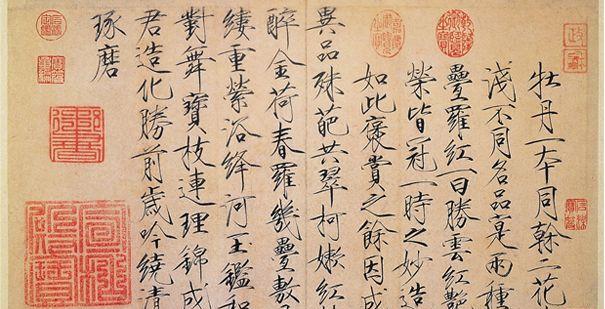 牡丹一本同幹二花
淺不同名品寔兩種
疊羅紅一曰勝雲紅艷
榮皆冠一時之妙造
如此褒賞之餘因成
異品殊葩共翠柯嫩紅
醉金荷春羅幾疊敷
縷重縈浴絳河玉鑑和
對舞寶枝連理錦成
君造化勝前歲吟繞清
琢磨